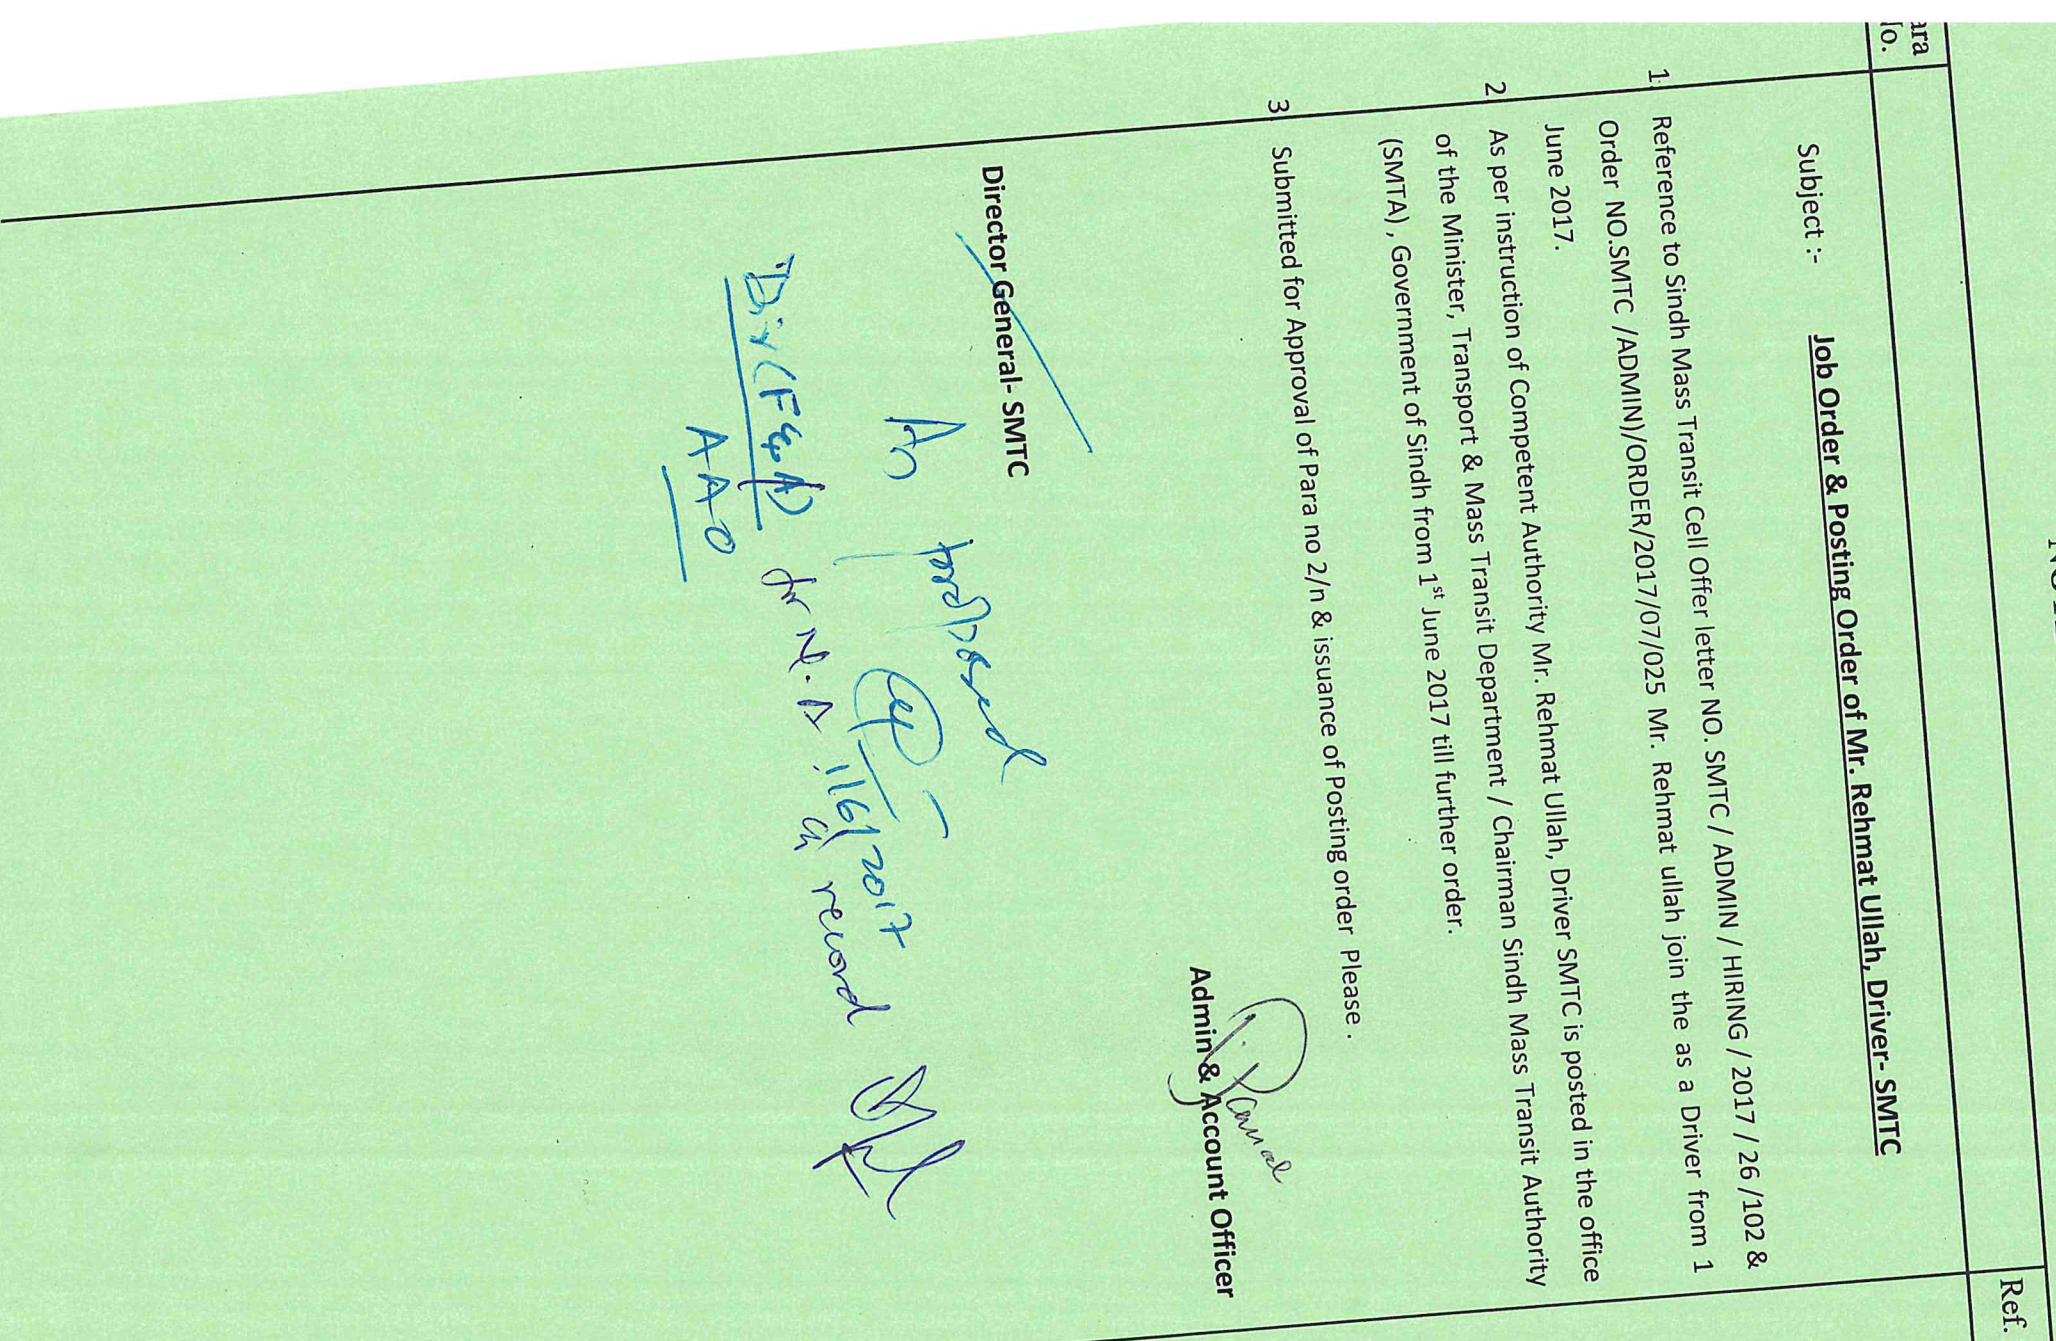 Ref.
Subject :- Job Order & Posting Order of Mr. Rehmat Ullah, Driver- SMTC
1 Reference to Sindh Mass Transit Cell Offer letter NO. SMTC / ADMIN / HIRING / 2017 / 26 /102 &
Order NO.SMTC /ADMIN)/ORDER/2017/07/025 Mr. Rehmat ullah join the as a Driver from 1
June 2017.
2 As per instruction of Competent Authority Mr. Rehmat Ullah, Driver SMTC is posted in the office
of the Minister, Transport & Mass Transit Department / Chairman Sindh Mass Transit Authority
(SMTA) , Government of Sindh from 1st June 2017 till further order.
3 Submitted for Approval of Para no 2/n & issuance of Posting order Please .
Admin & Account Officer
Director General- SMTC
As proposed
1/6/2017
Dir (F&A)
AAO
record